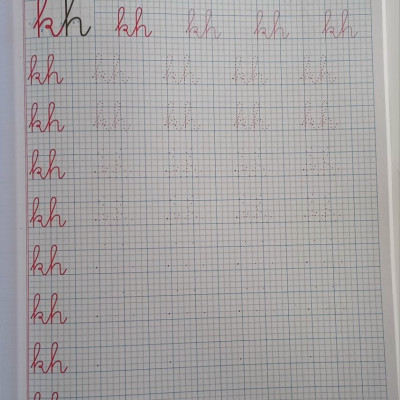 kh kh kh kh kh
kh kh kh kh kh
kh kh kh kh kh
kh kh kh kh kh
kh kh kh kh kh
kh
kh
kh